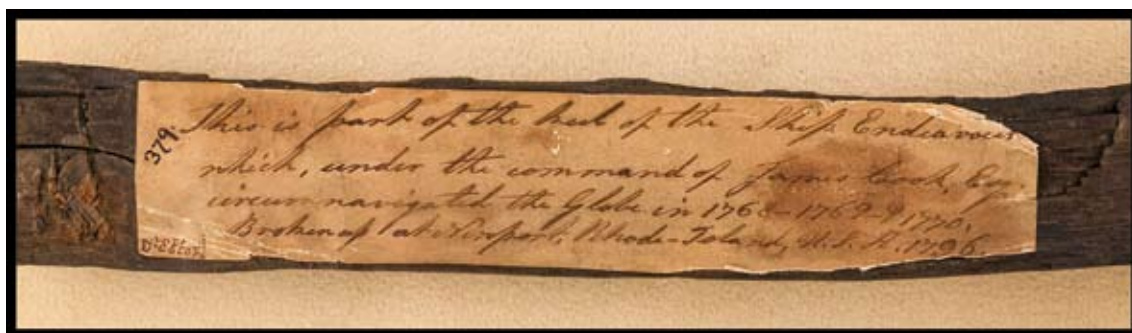 379.
This is part of the keel of the Ship Endeavour
which, under the command of James Cook, Esq.
circumnavigated the Globe in 1768-1769 & 1770,
Broken up at Newport, Rhode-Island, U.S.A. 1796.